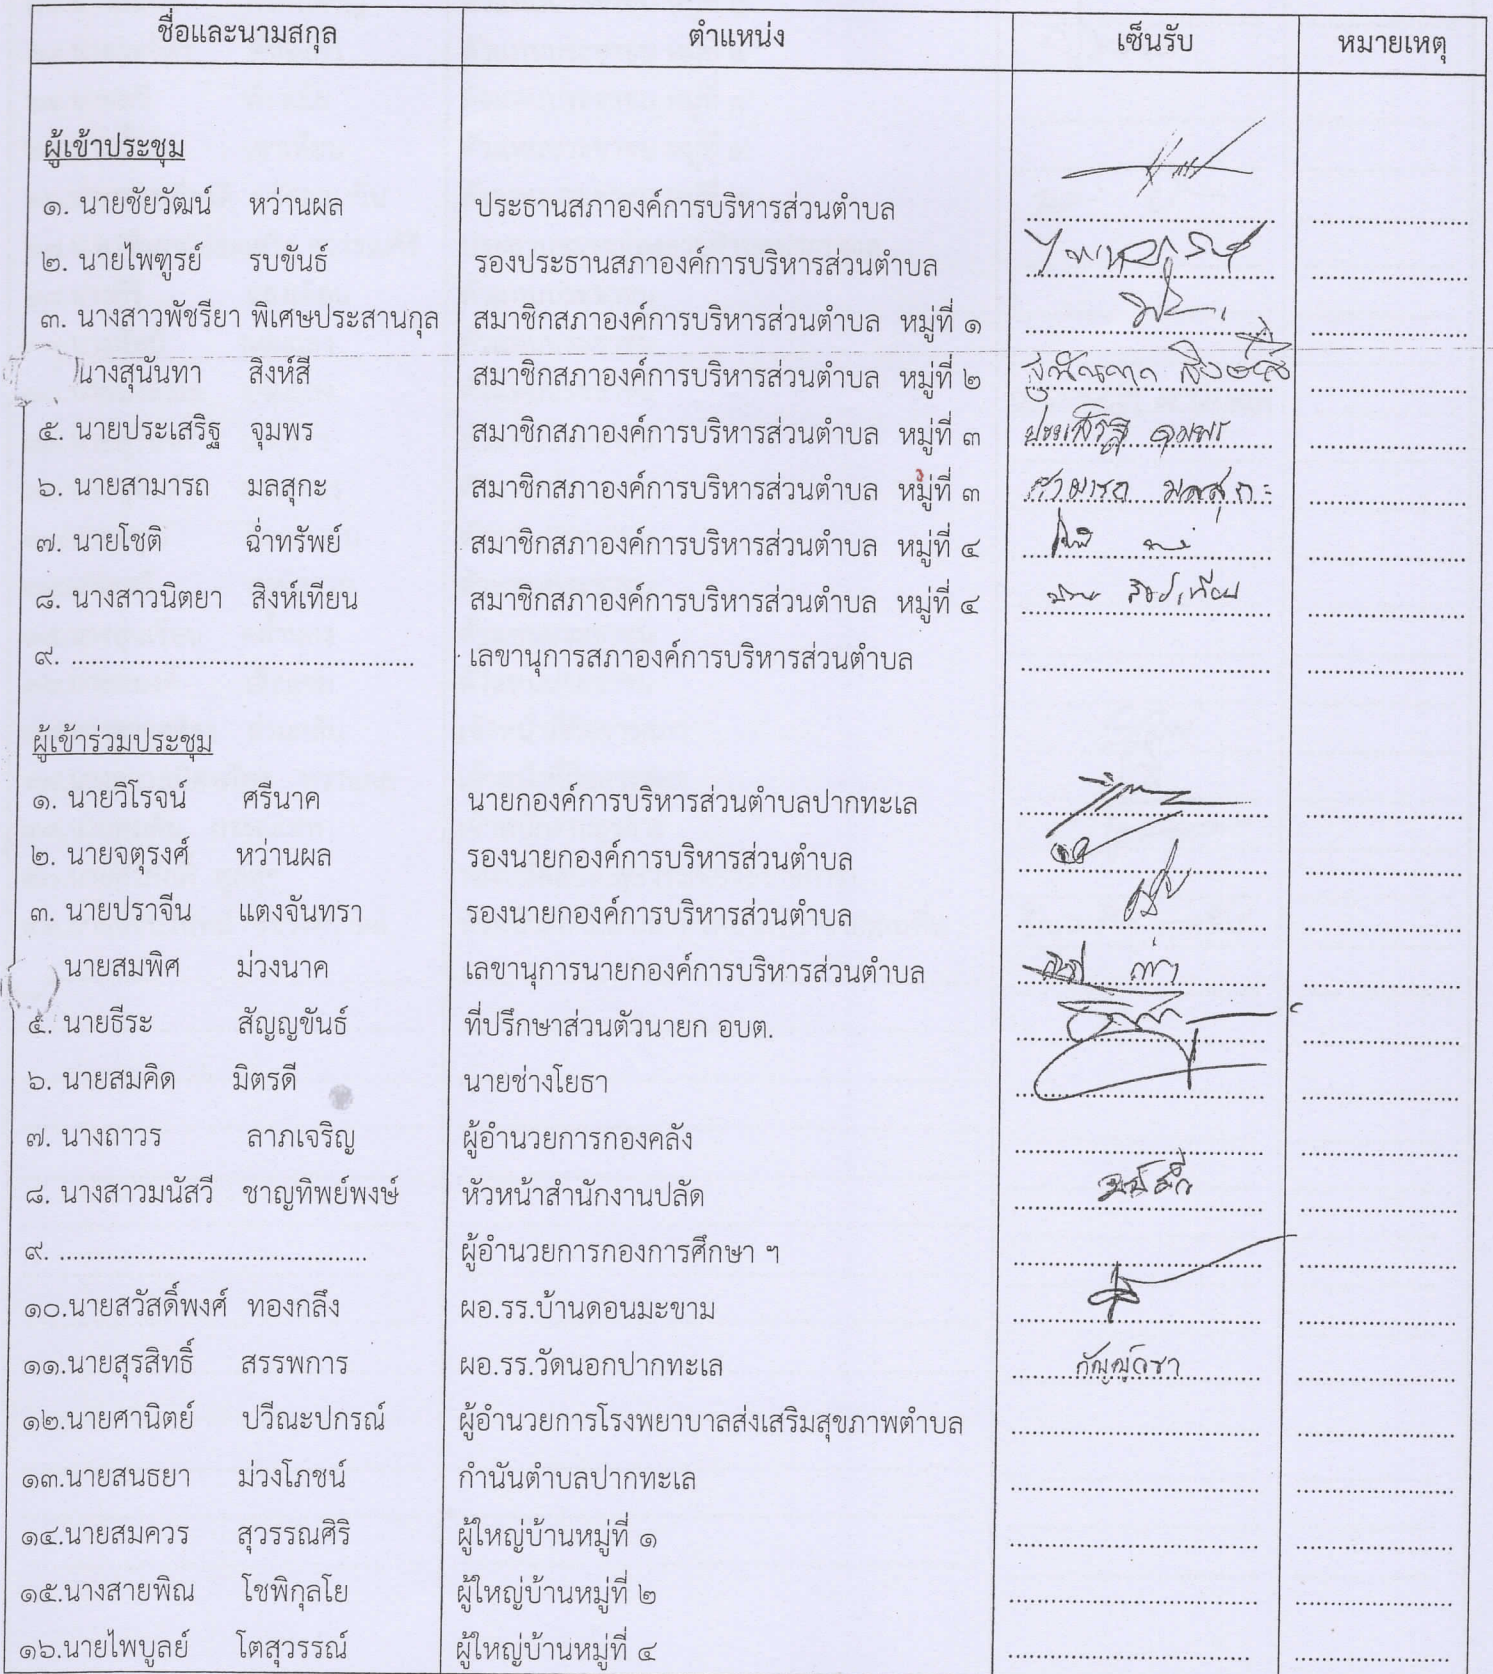 ชื่อและนามสกุล ตำแหน่ง เซ็นรับ หมายเหตุ
ผู้เข้าประชุม
๑. นายชัยวัฒน์ หว่านผล ประธานสภาองค์การบริหารส่วนตำบล
๒. นายไพฑูรย์ รบขันธ์ รองประธานสภาองค์การบริหารส่วนตำบล
๓. นางสาวพัชรียา พิเศษประสานกุล สมาชิกสภาองค์การบริหารส่วนตำบล หมู่ที่ ๑
นางสุนันทา สิงห์สี สมาชิกสภาองค์การบริหารส่วนตำบล หมู่ที่ ๒ สุนันทา สิงห์สี
๕. นายประเสริฐ จุมพร สมาชิกสภาองค์การบริหารส่วนตำบล หมู่ที่ ๓ ประเสริฐ จุมพร
๖. นายสามารถ มลสุกะ สมาชิกสภาองค์การบริหารส่วนตำบล หมู่ที่ ๓ สามารถ มลสุกะ
๗. นายโชติ ฉ่ำทรัพย์ สมาชิกสภาองค์การบริหารส่วนตำบล หมู่ที่ ๔
๘. นางสาวนิตยา สิงห์เทียน สมาชิกสภาองค์การบริหารส่วนตำบล หมู่ที่ ๔
๙. .................................................... เลขานุการสภาองค์การบริหารส่วนตำบล
ผู้เข้าร่วมประชุม
๑. นายวิโรจน์ ศรีนาค นายกองค์การบริหารส่วนตำบลปากทะเล
๒. นายจตุรงศ์ หว่านผล รองนายกองค์การบริหารส่วนตำบล
๓. นายปราจีน แตงจันทรา รองนายกองค์การบริหารส่วนตำบล
นายสมพิศ ม่วงนาค เลขานุการนายกองค์การบริหารส่วนตำบล
๕. นายธีระ สัญญขันธ์ ที่ปรึกษาส่วนตัวนายก อบต.
๖. นายสมคิด มิตรดี นายช่างโยธา
๗. นางถาวร ลาภเจริญ ผู้อำนวยการกองคลัง
๘. นางสาวมนัสวี ชาญทิพย์พงษ์ หัวหน้าสำนักงานปลัด
๙. ............................................... ผู้อำนวยการกองการศึกษา ฯ
๑๐.นายสวัสดิ์พงศ์ ทองกลึง ผอ.รร.บ้านดอนมะขาม
๑๑.นายสุรสิทธิ์ สรรพการ ผอ.รร.วัดนอกปากทะเล
๑๒.นายศานิตย์ ปวีณะปกรณ์ ผู้อำนวยการโรงพยาบาลส่งเสริมสุขภาพตำบล
๑๓.นายสนธยา ม่วงโภชน์ กำนันตำบลปากทะเล
๑๔.นายสมควร สุวรรณศิริ ผู้ใหญ่บ้านหมู่ที่ ๑
๑๕.นางสายพิณ โชพิกุลโย ผู้ใหญ่บ้านหมู่ที่ ๒
๑๖.นายไพบูลย์ โตสุวรรณ์ ผู้ใหญ่บ้านหมู่ที่ ๔